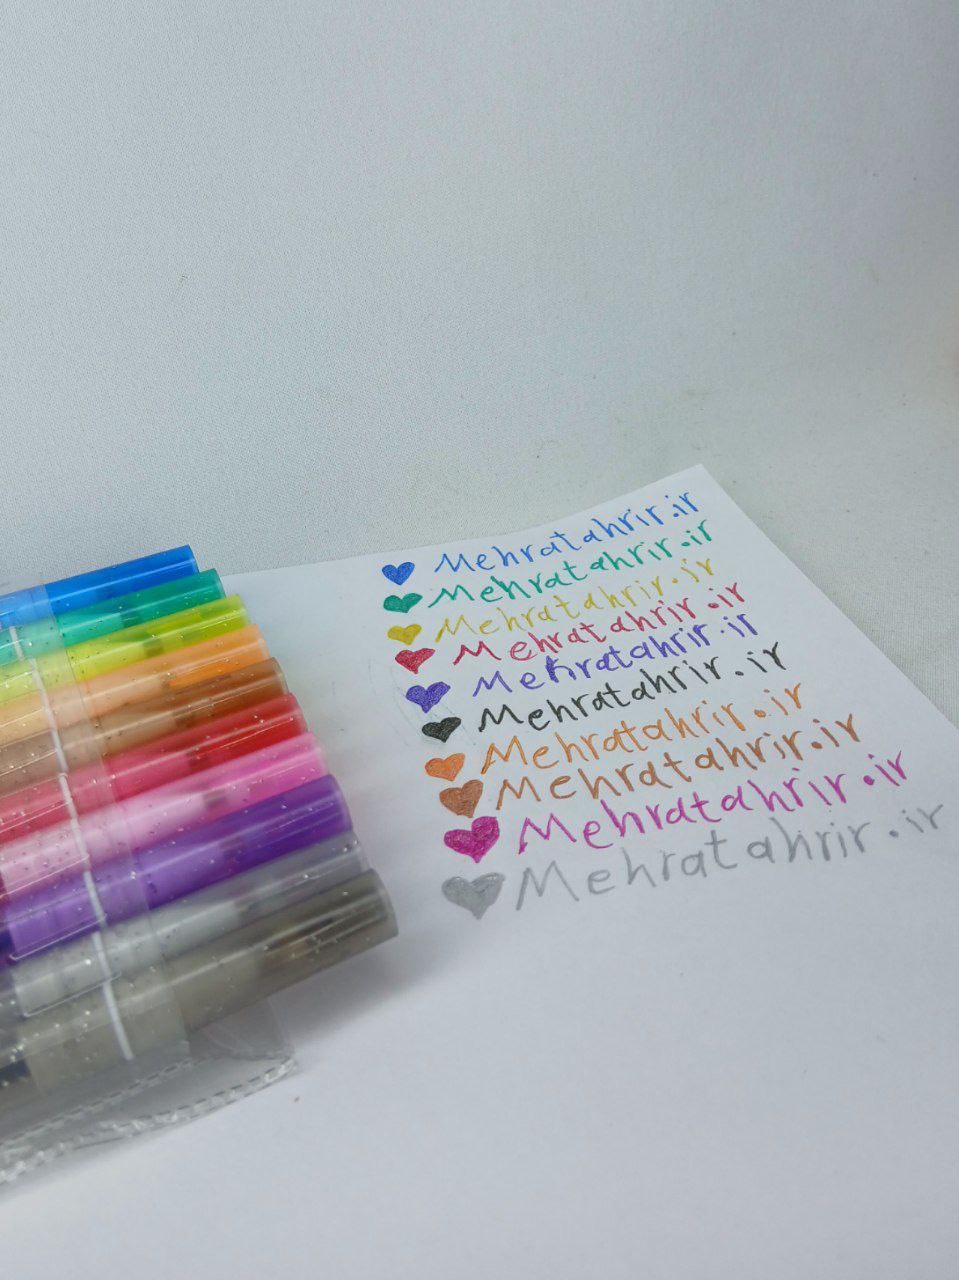 Mehratahrir.ir
Mehratahrir.ir
Mehratahrir.ir
Mehratahrir.ir
Mehratahrir.ir
Mehratahrir.ir
Mehratahrir.ir
Mehratahrir.ir
Mehratahrir.ir
Mehratahrir.ir